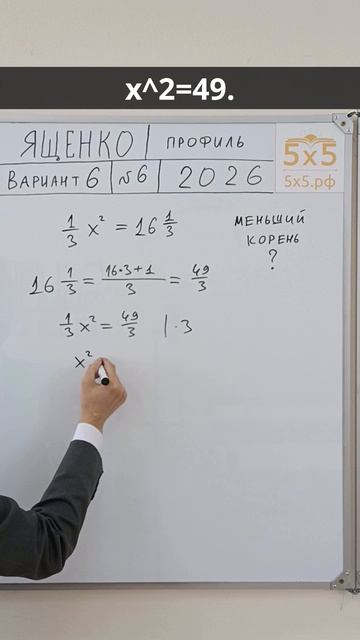 x^2=49.
ЯЩЕНКО ПРОФИЛЬ
ВАРИАНТ 6 №6 2026
5x5
5x5.рф
1/3 x² = 16 1/3
МЕНЬШИЙ
КОРЕНЬ
?
16 1/3 = 16·3+1/3 = 49/3
1/3 x² = 49/3 | ·3
x²